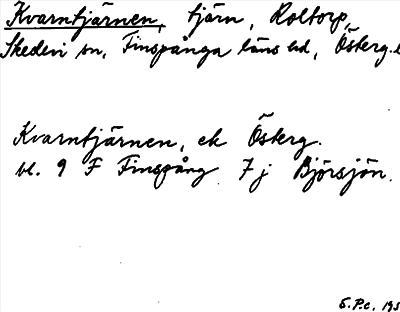 Kvarntjärnen, tjärn, Roltorp,
Skedevi sn, Finspånga läns hd, Österg.l
Kvarntjärnen, ek Österg.
bl. 9 F Finspång 7 j Björsjön.
S.P.c. 195